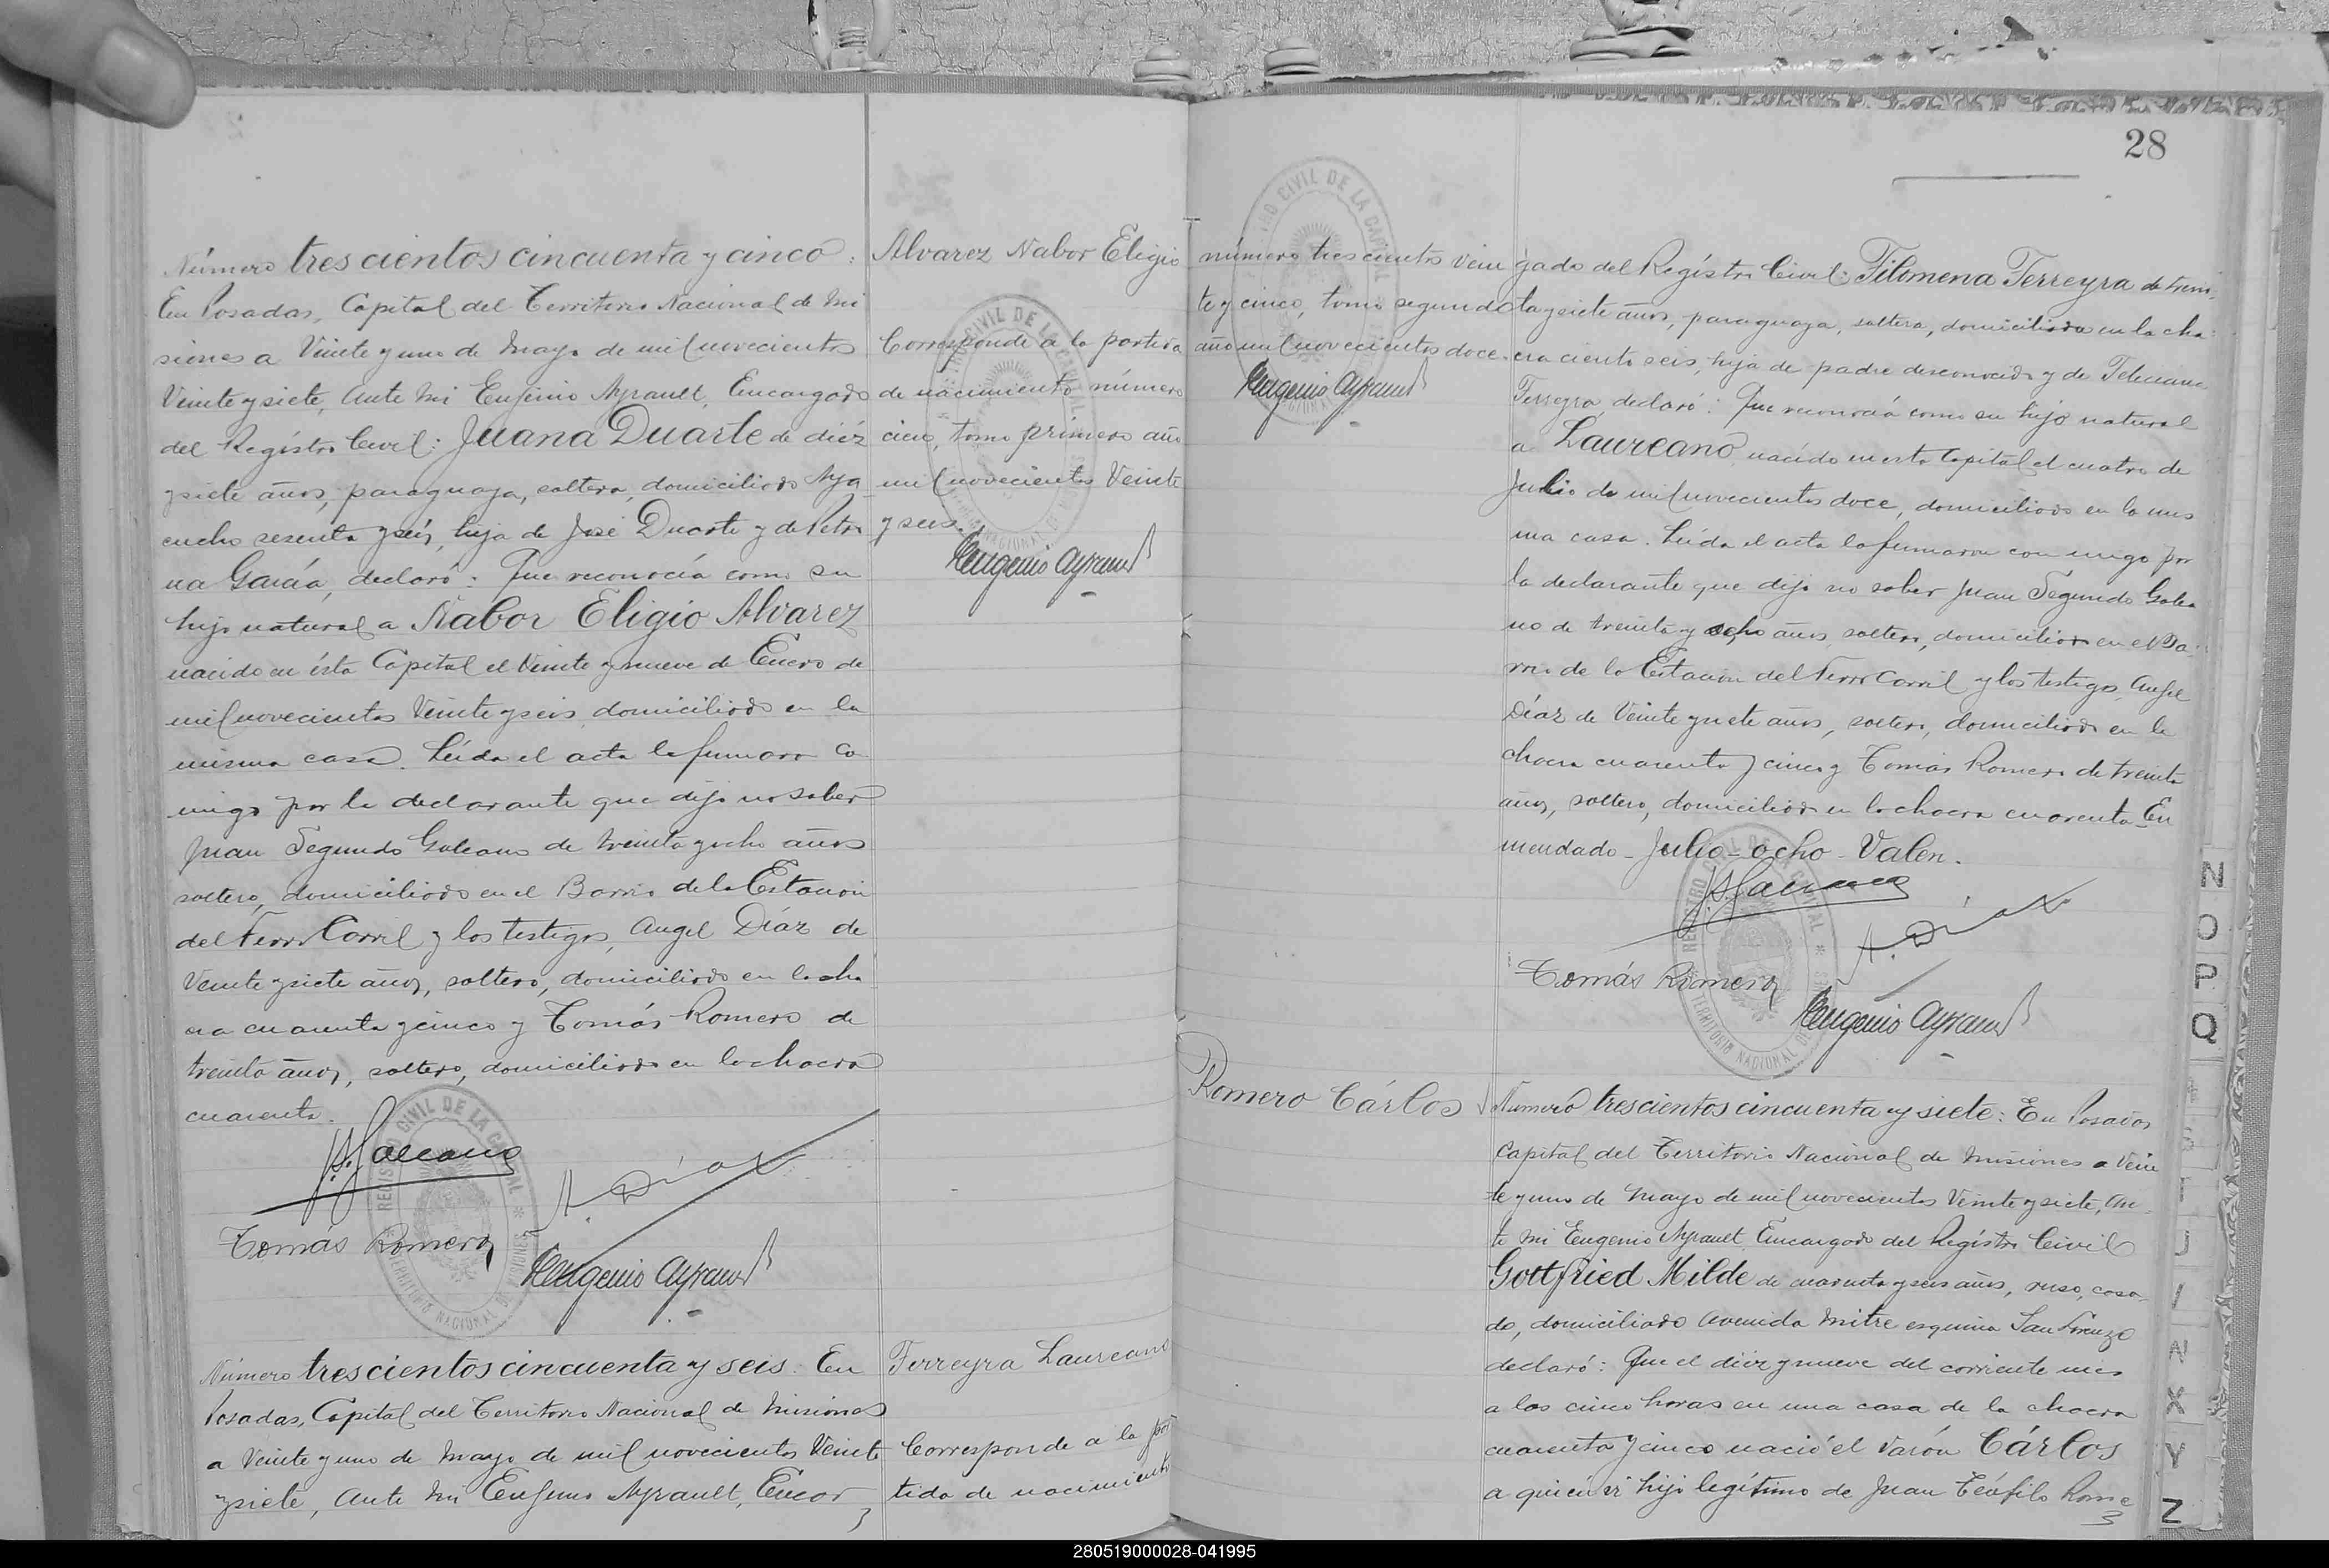 28
Número trescientos cincuenta y cinco:
En Posadas, Capital del Territorio Nacional de Mi
siones a Veinte y uno de Mayo de mil novecientos
Veinte y siete, Ante mi Eugenio Ayrault, Encargado
del Registro Civil: Juana Duarte de diéz
y siete años, paraguaya, soltera, domiciliada Aya
cucho sesenta y seis, hija de José Duarte y de Petro
na García, declaró: Que reconocía como su
hijo natural a Nabor Eligio Alvarez
nacido en ésta Capital el Veinte y nueve de Enero de
mil novecientos Veinte y seis, domiciliado en la
misma casa. Leída el acta la firmaron co
migo por la declarante que dijo no saber
Juan Segundo Galeano de treinta y ocho años
soltero, domiciliado en el Barrio de la Estación
del Ferro Carril y los testigos, Angel Díaz de
Veinte y siete años, soltero, domiciliado en la cha
cra cuarenta y cinco y Tomás Romero de
treinta años, soltero, domiciliado en la chacra
cuarenta.
J.S. Galeano
A. Díaz
Tomás Romero
Eugenio Ayrault
REGISTRO CIVIL DE LA CAPITAL
TERRITORIO NACIONAL DE MISIONES
Alvarez Nabor Eligio
Corresponde a la partida
de nacimiento número
cien, tomo primero año
mil novecientos Veinte
y seis.
Eugenio Ayrault
Número trescientos cincuenta y seis: En
Posadas, Capital del Territorio Nacional de Misiones
a Veinte y uno de Mayo de mil novecientos Veinte
y siete, Ante mi Eugenio Ayrault, Encar
Ferreyra Laureano
Corresponde a la par
tida de nacimiento
número trescientos vein
te y cinco, tomo segundo
año mil novecientos doce.
Eugenio Ayrault
gado del Registro Civil: Filomena Ferreyra de trein
ta y siete años, paraguaya, soltera, domiciliada en la cha
cra ciento seis, hija de padre desconocido y de
Ferreyra, declaró: Que reconocía como su hijo natural
a Laureano nacido en esta Capital el cuatro de
Julio de mil novecientos doce, domiciliado en la mis
ma casa. Leída el acta la firmaron con migo por
la declarante que dijo no saber Juan Segundo Galea
no de treinta y ocho años, soltero, domiciliado en el Ba
rrio de la Estación del Ferro Carril y los testigos, Angel
Díaz de Veinte y siete años, soltero, domiciliado en la
chacra cuarenta y cinco y Tomás Romero de treinta
años, soltero, domiciliado en la chacra cuarenta. En
mendado - Julio - ocho - Valen.
J.S. Galeano
A. Díaz
Tomás Romero
Eugenio Ayrault
REGISTRO CIVIL DE LA CAPITAL
TERRITORIO NACIONAL DE MISIONES
Romero Cárlos
Número trescientos cincuenta y siete: En Posadas
Capital del Territorio Nacional de Misiones a Vein
te y uno de Mayo de mil novecientos Veinte y siete, An
te mi Eugenio Ayrault, Encargado del Registro Civil
Gottfried Milde de cuarenta y seis años, ruso, casa
do, domiciliado Avenida Mitre esquina San Lorenzo
declaró: Que el diez y nueve del corriente mes
a las cinco horas en una casa de la chacra
cuarenta y cinco nació el Varón Cárlos
a quien vi hijo legítimo de Juan Teófilo Rome
N
O
P
Q
T
U
N
X
Y
Z
280519000028-041995